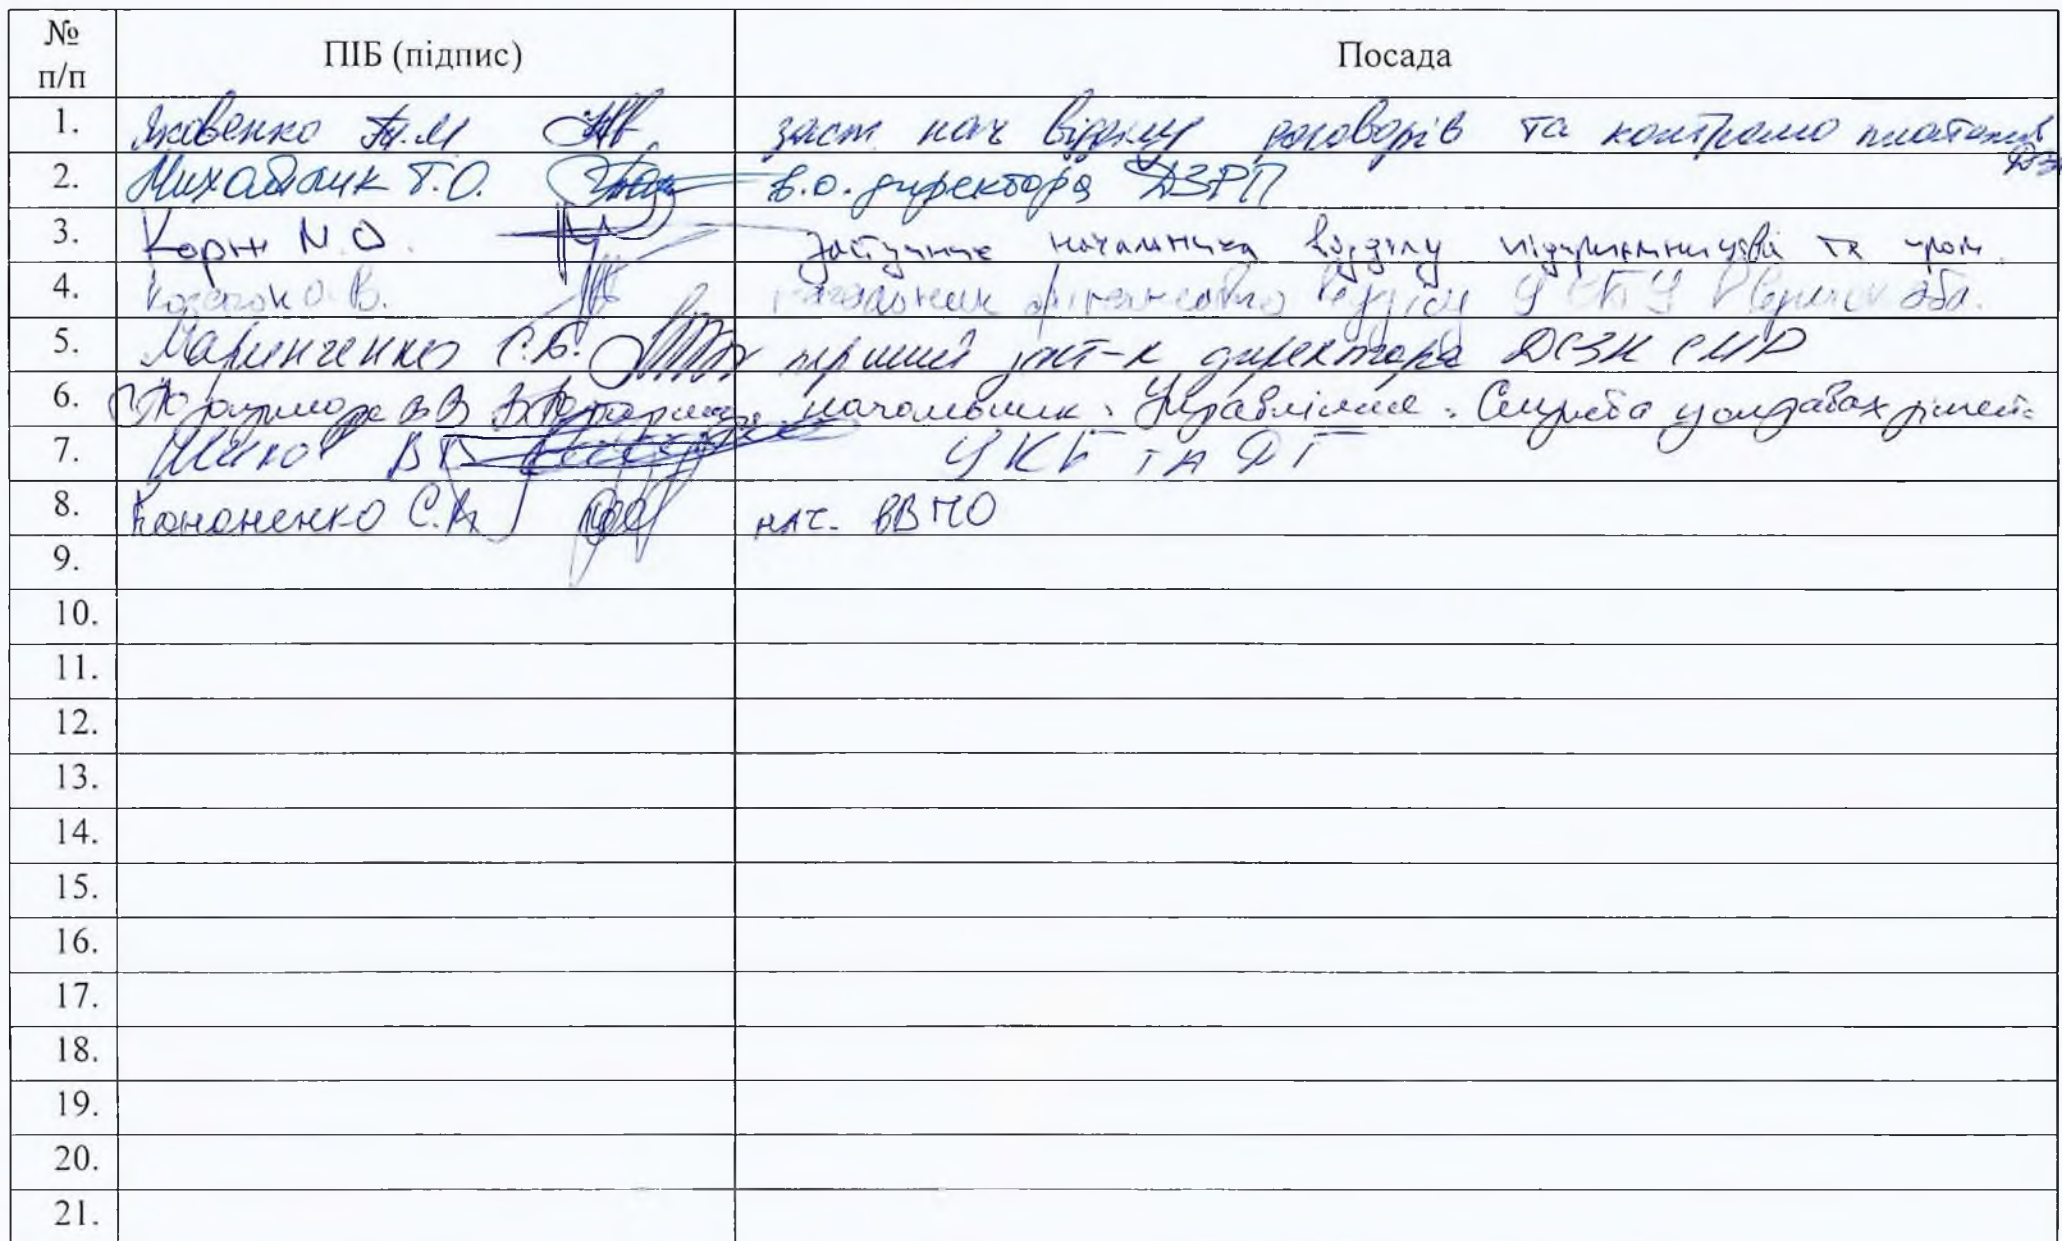 № п/п ПІБ (підпис) Посада
1. Яковенко Т.М заст нач відділу договорів та контролю платежів
2. Михайлик Т.О. в.о. директора ДЗРП
3. Корж М.О. Заступник начальника відділу підприємництва та пром.
4. О.В. начальник фінансового відділу У обл.
5. Маринченко С.В. перший заст-к директора ДСЗН СМР
6. В В начальник "Управління "Служба у справах дітей"
7. В УКБ ТА ДГ
8. Кононенко С.В. нач. ВВПО
9.
10.
11.
12.
13.
14.
15.
16.
17.
18.
19.
20.
21.